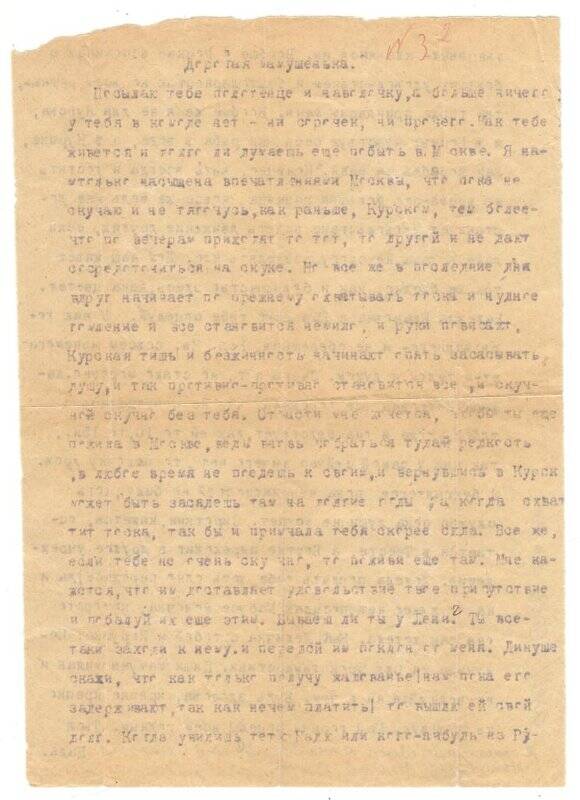 N 3 2
Дорогая мамушенька.
Посылаю тебе полотенце и наволочку, а больше ничего
у тебя в комоде нет - ни сорочек, ни прочего. Как тебе
живется и долго ли думаешь еще побыть в Москве. Я на-
столько насыщена впечатлениями Москвы, что пока не
скучаю и не тягочусь, как раньше, Курском, тем более-
что по вечерам приходят то тот, то другой и не дают
сосредоточиться на скуке. Но все же в последние дни
вдруг начинает по прежнему охватывать тоска и нудное
томление и все становится немило, и руки повисают,
Курская тишь и безжизность начинают опять засасывать
душу, и так противно-противно становится все, и скуч-
ней скучно без тебя. Отчасти мне хочется, чтобы ты еще
пожила в Москве, ведь вновь собраться туда редкость
, в любое время не поедешь к своим, и вернувшись в Курск
может быть засядешь там на долгие годы, а когда схва
тит тоска, так бы и примчала тебя скорее сюда. Все же,
если тебе не очень скучно, то поживи еще там. Мне ка-
жется, что им доставляет удовольствие твое присутствие
и побалуй их еще этим. Бываеш ли ты у Лени? Ты все-
таки заходи к нему и передай им поклон от меня. Динуше
скажи, что как только получу жалованье/нам пока его
задерживают, так как нечем платить/ то вышлю ей свой
долг. Когда увидишь тетю или кого-нибудь из Ру-